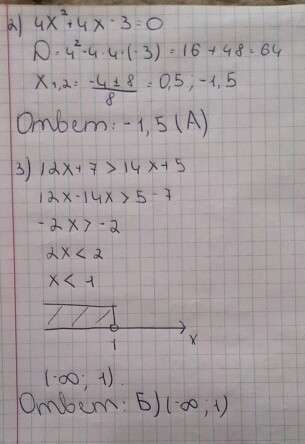 2) 4x²+4x-3=0
D=4²-4·4·(-3)=16+48=64
x₁,₂=(-4±8)/8=0,5; -1,5
Ответ: -1,5 (А)
3) 12x+7>14x+5
12x-14x>5-7
-2x>-2
2x<2
x<-1
1
x
(-∞; 1).
Ответ: Б) (-∞; 1)